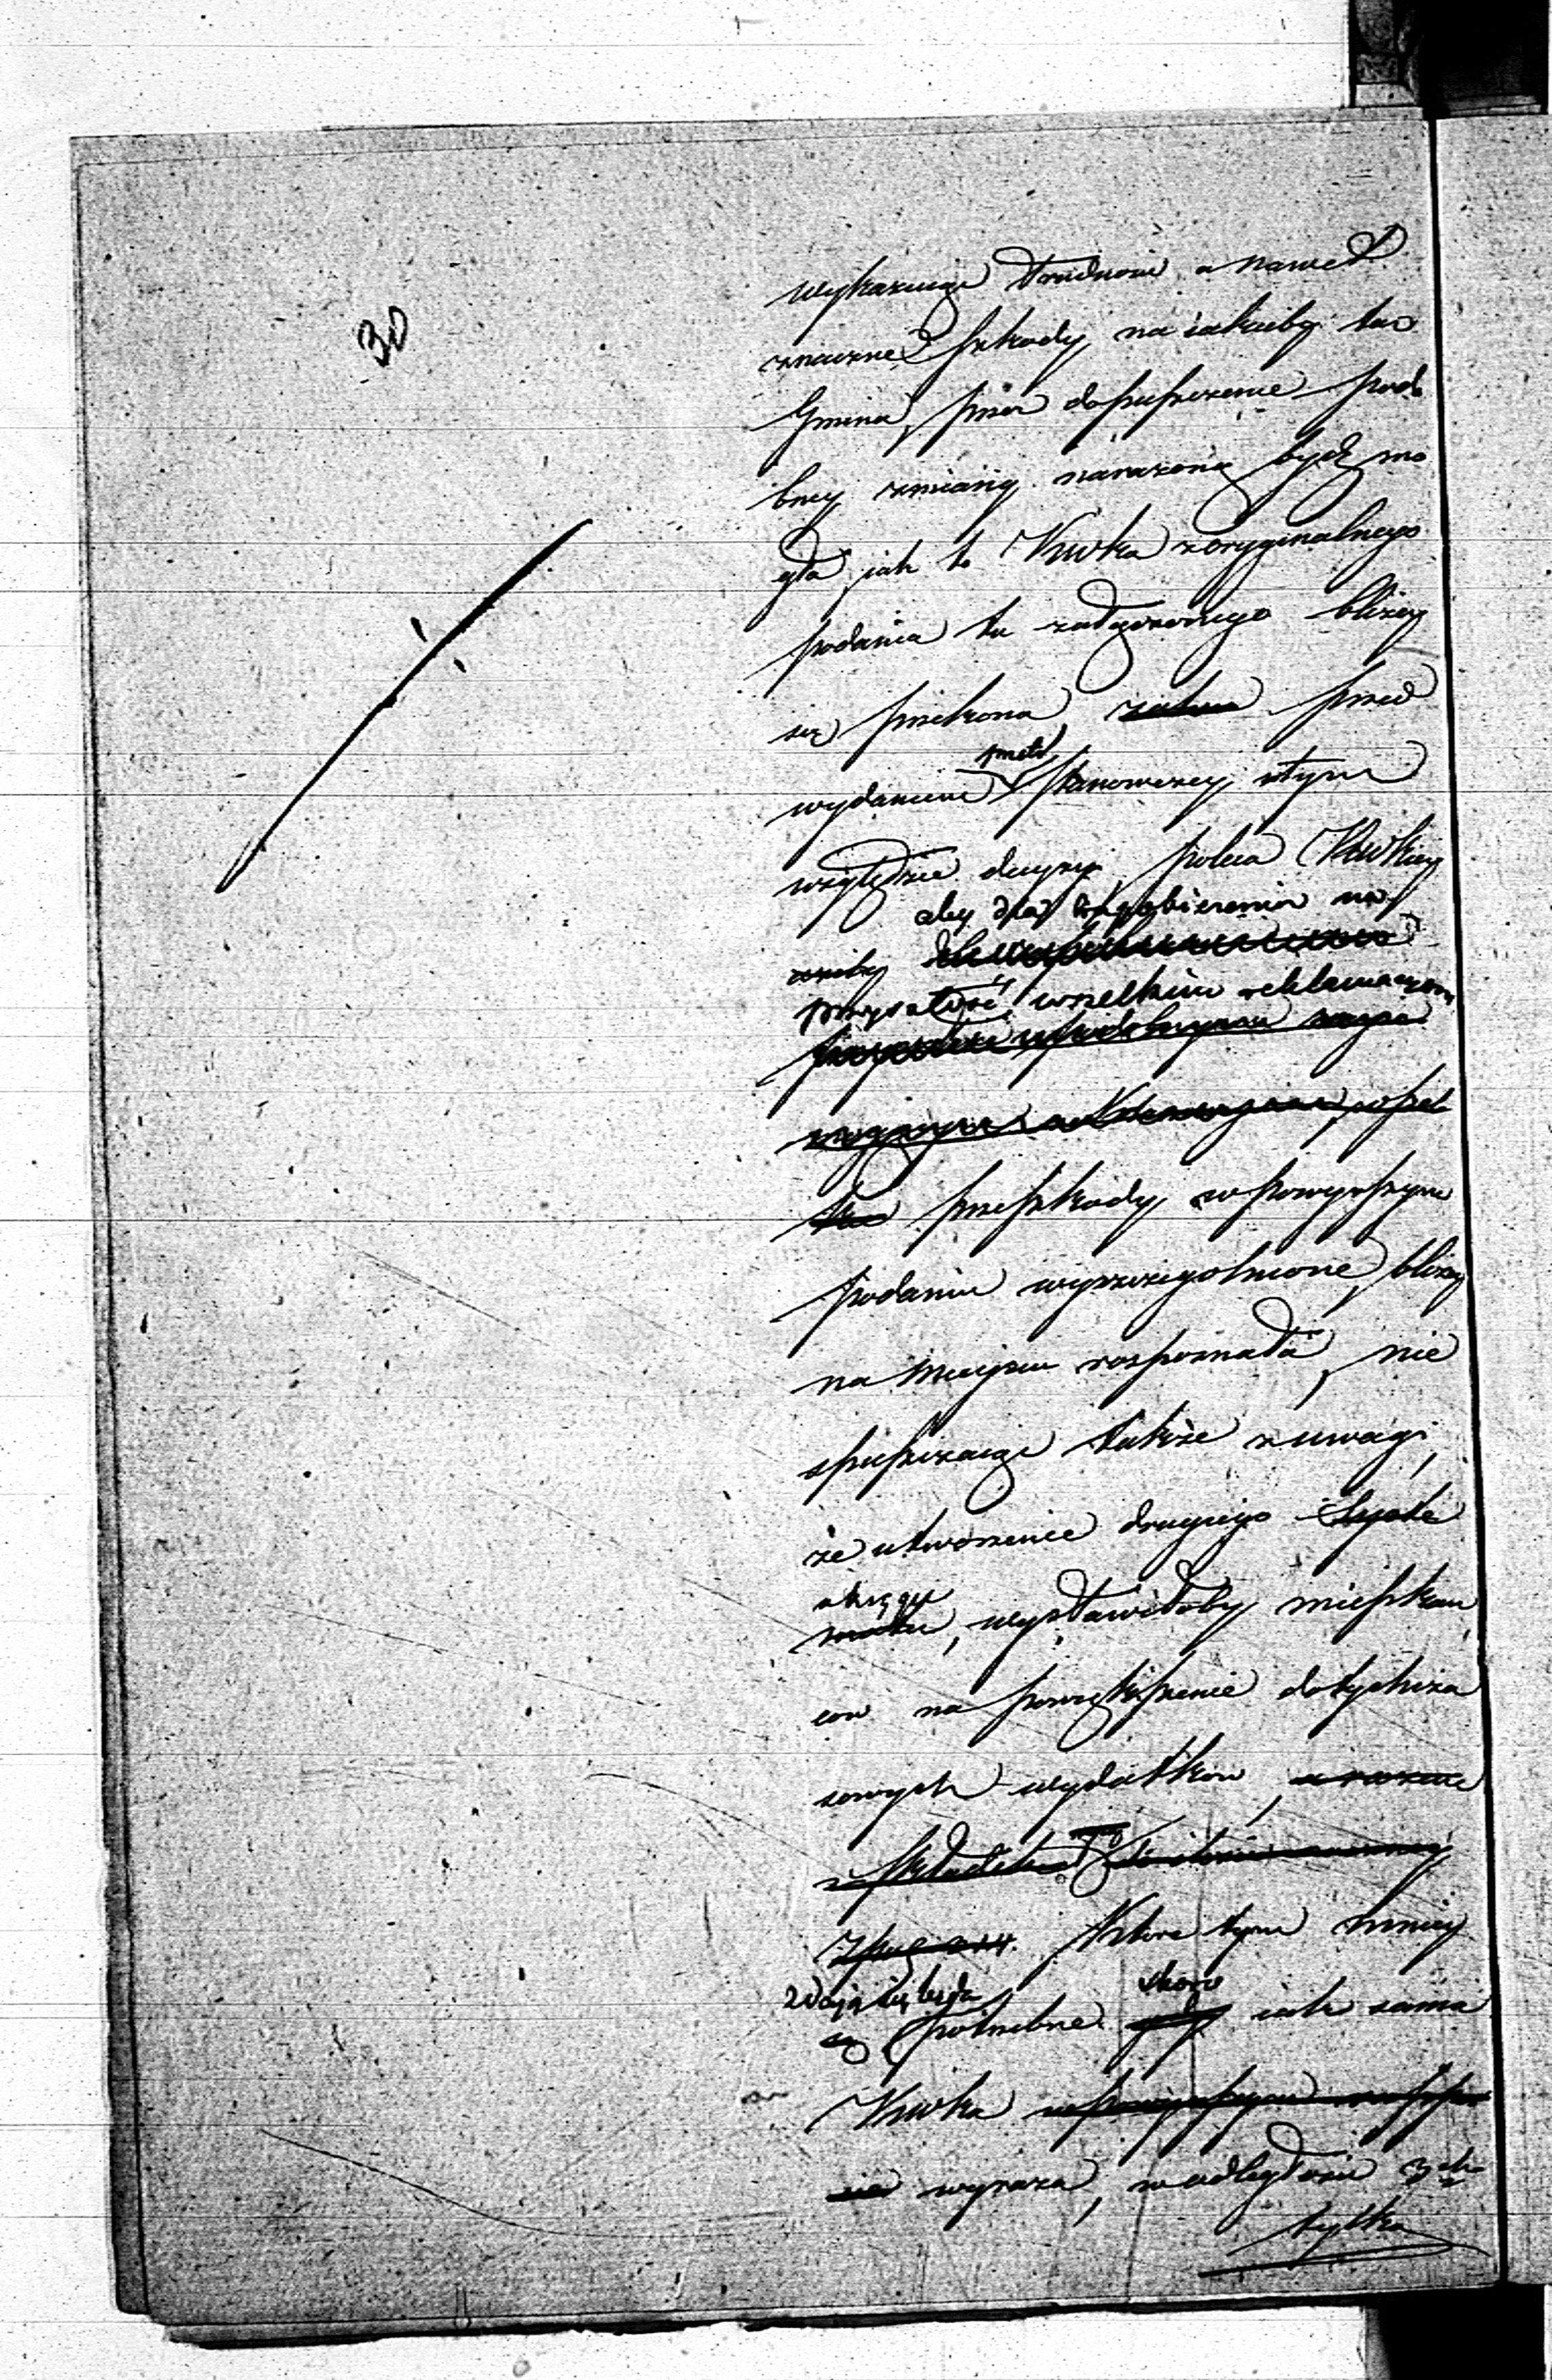 30
wykazując trudności a nawet
znaczne szkody na jakieby tao
Gmina, przez dopuszczenie podo
bney zmiany narażoną bydź mo
gła, jak to Kwka z oryginalnego
podania tu załączonego bliżey
się przekona, przed
wydaniem stanowczey w tym
względzie decyzyi, poleca Kwkiey
aby dla zapobieżenia na
przyszłość wszelkim reklamacyom
przeszkody w powyższym
podaniu wyszczegolnione, bliżey
na mieyscu rozpoznała, nie
spuszczaiąc także z uwagi,
że utworzenie drugiego
okręgu, wystawiłoby mieszkań
cow na powiększenie dotychcza
sowych wydatkow,
Które tym mniey
zdają się być
potrzebne skoro jak sama
Kwka
wyraża, w odległości 3ch
tylko